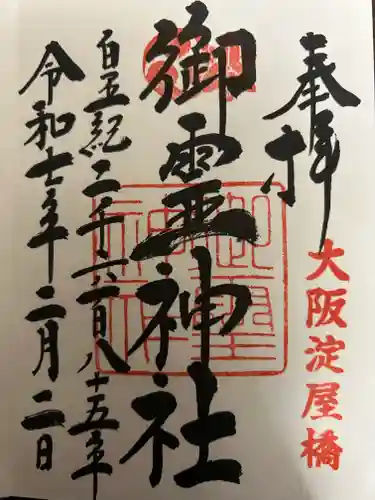 奉拝
大阪淀屋橋
御霊神社
皇紀二千六百八十五年
令和七年二月二日